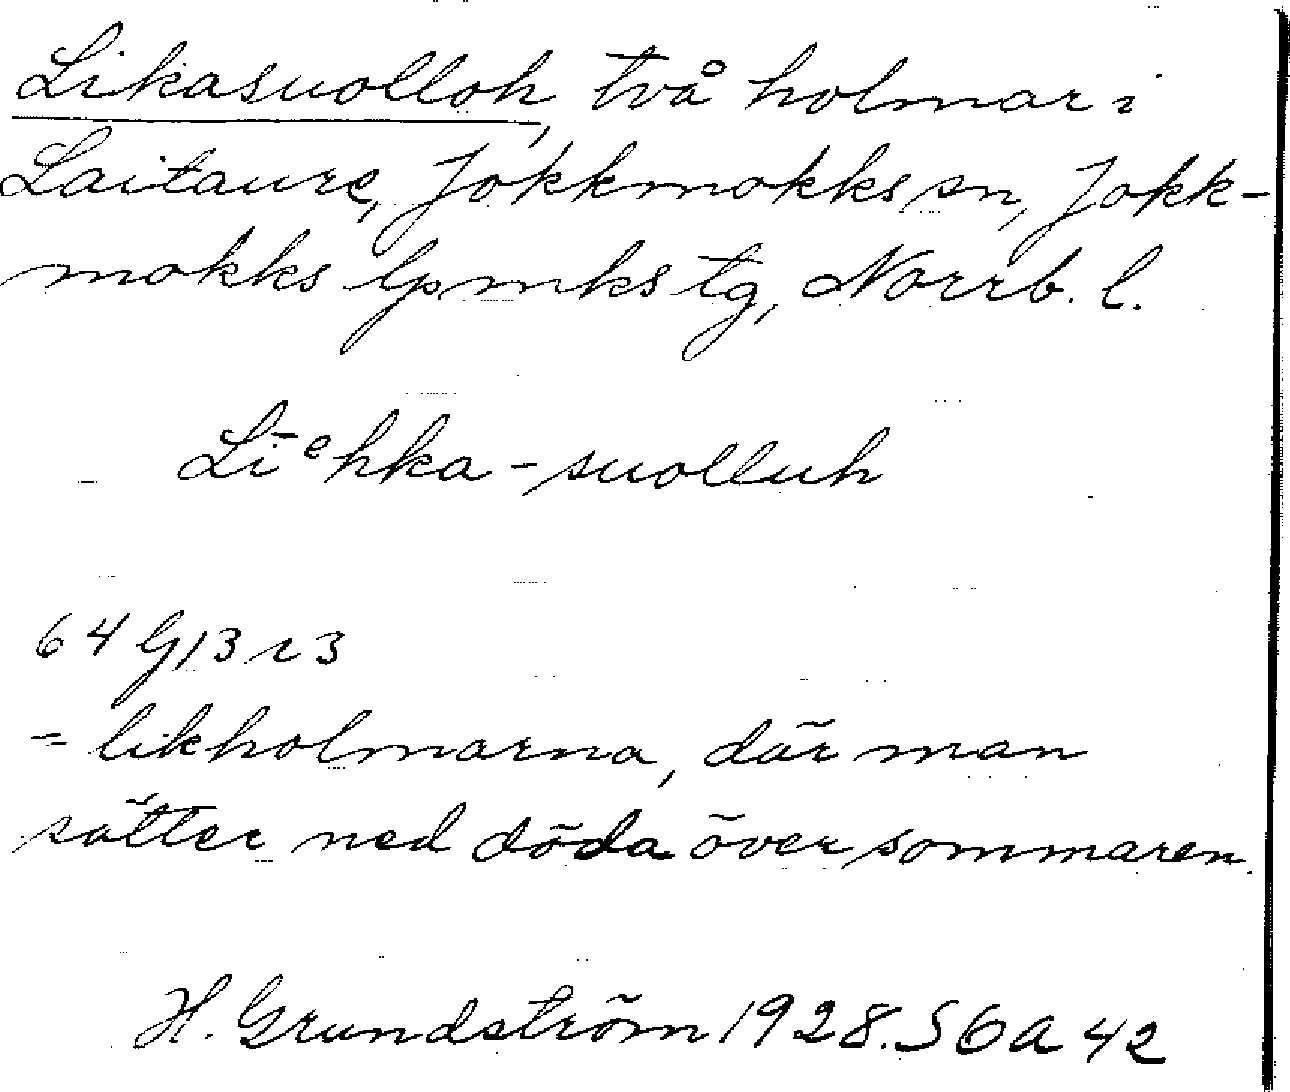 Likasuolloh, två holmar i
Laitaure, Jokkmokks sn, Jokk-
mokks lpmks tg, Norrb. l.
Līᵉhka-suolluh
64 G13 r3
= likholmarna, där man
sätter ned döda över sommaren.
H. Grundström 1928. S6a 42